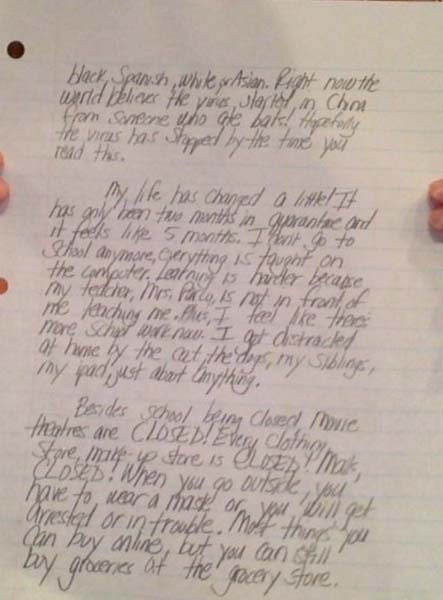 black, Spanish, white, or Asian. Right now the
world believes the virus, started, in China
from someone who ate bats! Hopefully
the virus has stopped by the time you
read this.
My life has changed a little! It
has only been two months in quarantine and
it feels like 5 months. I dont go to
school anymore, everything is taught on
the computer. Learning is harder because
my teacher, Mrs. is not in front of
me teaching me. Plus, I feel like there's
more school work now. I get distracted
at home by the cat, the dogs, my siblings,
my ipad, just about anything.
Besides school being closed movie
theatres are CLOSED! Every clothing
store, make-up store is CLOSED! Malls,
CLOSED! When you go outside, you
have to wear a mask or you will get
arrested or in trouble. Most things you
can buy online, but you can still
buy groceries at the grocery store.